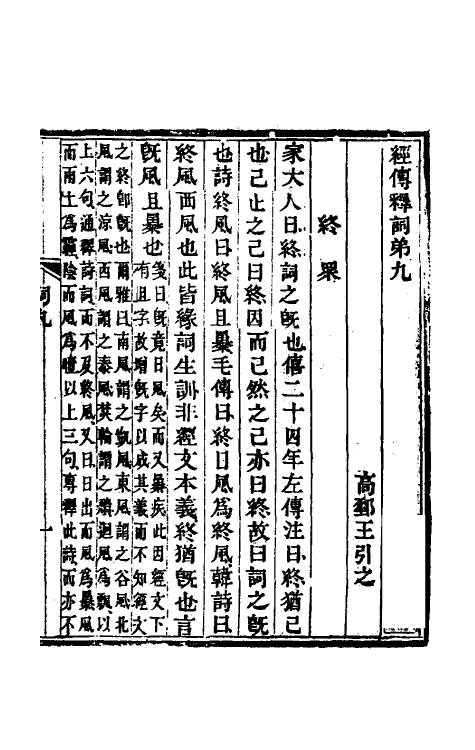 經傳釋詞弟九
高郵王引之
終 眾
家大人曰終詞之旣也僖二十四年左傳注曰終猶已
也已止之已曰終因而已然之已亦曰終故曰詞之旣
也詩終風曰終風且暴毛傳曰終日風爲終風韓詩曰
終風西風也此皆緣詞生訓非經文本義終猶旣也言
旣風且暴也
箋曰旣竟日風矣而又暴疾此因經文下
有且字故增旣字以成其義而不知經文
之終卽旣也爾雅曰南風謂之凱風東風謂之谷風北
風謂之涼風西風謂之泰風焚輪謂之穨迴風爲飄以
上六句通釋詩詞而不及終風又曰日出而風爲暴風
而雨土爲霾陰而風爲曀以上三句專釋此詩而亦不
詞九
一